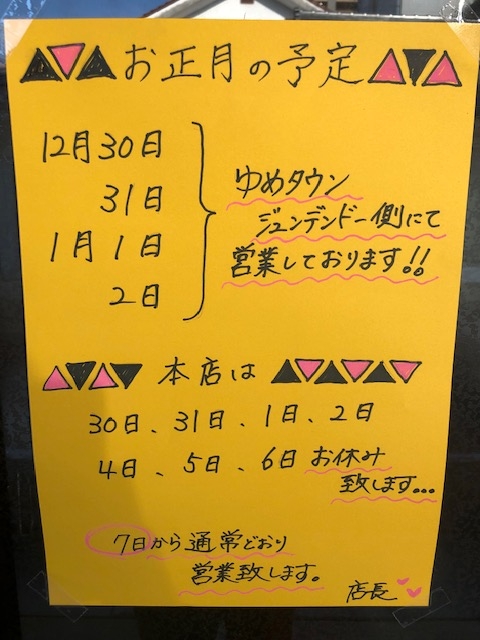 お正月の予定
12月30日
31日
1月1日
2日
ゆめタウン
ジュンテンドー側にて
営業しております!!
本店は
30日、31日、1日、2日
4日、5日、6日 お休み
致します...
7日から通常どおり
営業致します。
店長